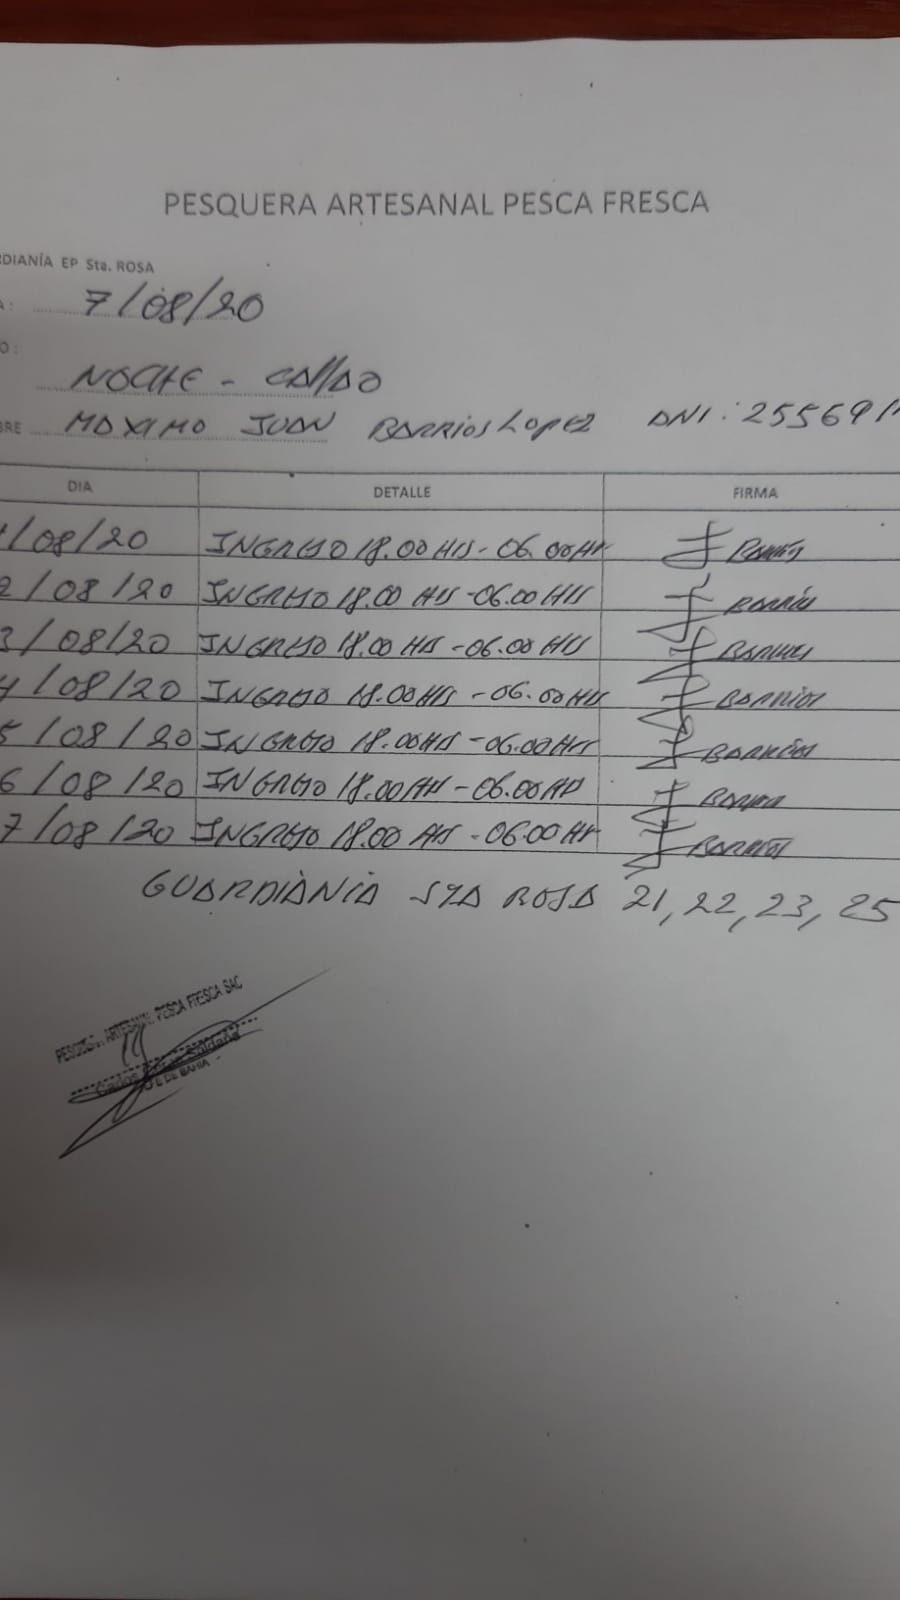 PESQUERA ARTESANAL PESCA FRESCA
RDIANÍA EP Sta. ROSA
A: 7/08/20
O:
NOCHE - CALLAO
BRE MAXIMO JUAN BARRIOS LOPEZ DNI: 255691
DIA DETALLE FIRMA
1/08/20 INGRESO 18.00 HRS - 06.00 HR BARRIOS
2/08/20 INGRESO 18.00 HRS - 06.00 HRS BARRIOS
3/08/20 INGRESO 18.00 HRS - 06.00 HRS BARRIOS
4/08/20 INGRESO 18.00 HRS - 06.00 HRS BARRIOS
5/08/20 INGRESO 18.00 HRS - 06.00 HRS BARRIOS
6/08/20 INGRESO 18.00 HRS - 06.00 HR BARRIOS
7/08/20 INGRESO 18.00 HRS - 06.00 HR BARRIOS
GUARDIANIA STA ROSA 21, 22, 23, 25
ARTESANAL PESCA FRESCA SAC
Saldaña
DE BAHIA